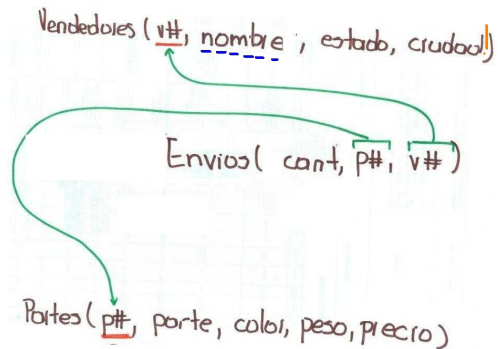 Vendedores ( v#, nombre , estado, ciudad)
Envios( cant, p#, v# )
Partes( p#, parte, color, peso, precio)